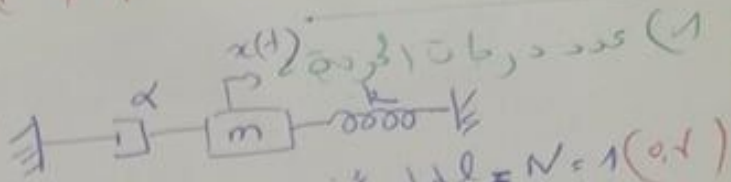 1) عدد درجات الحرية
x(t)
α m k
= N = 1 (0,5)